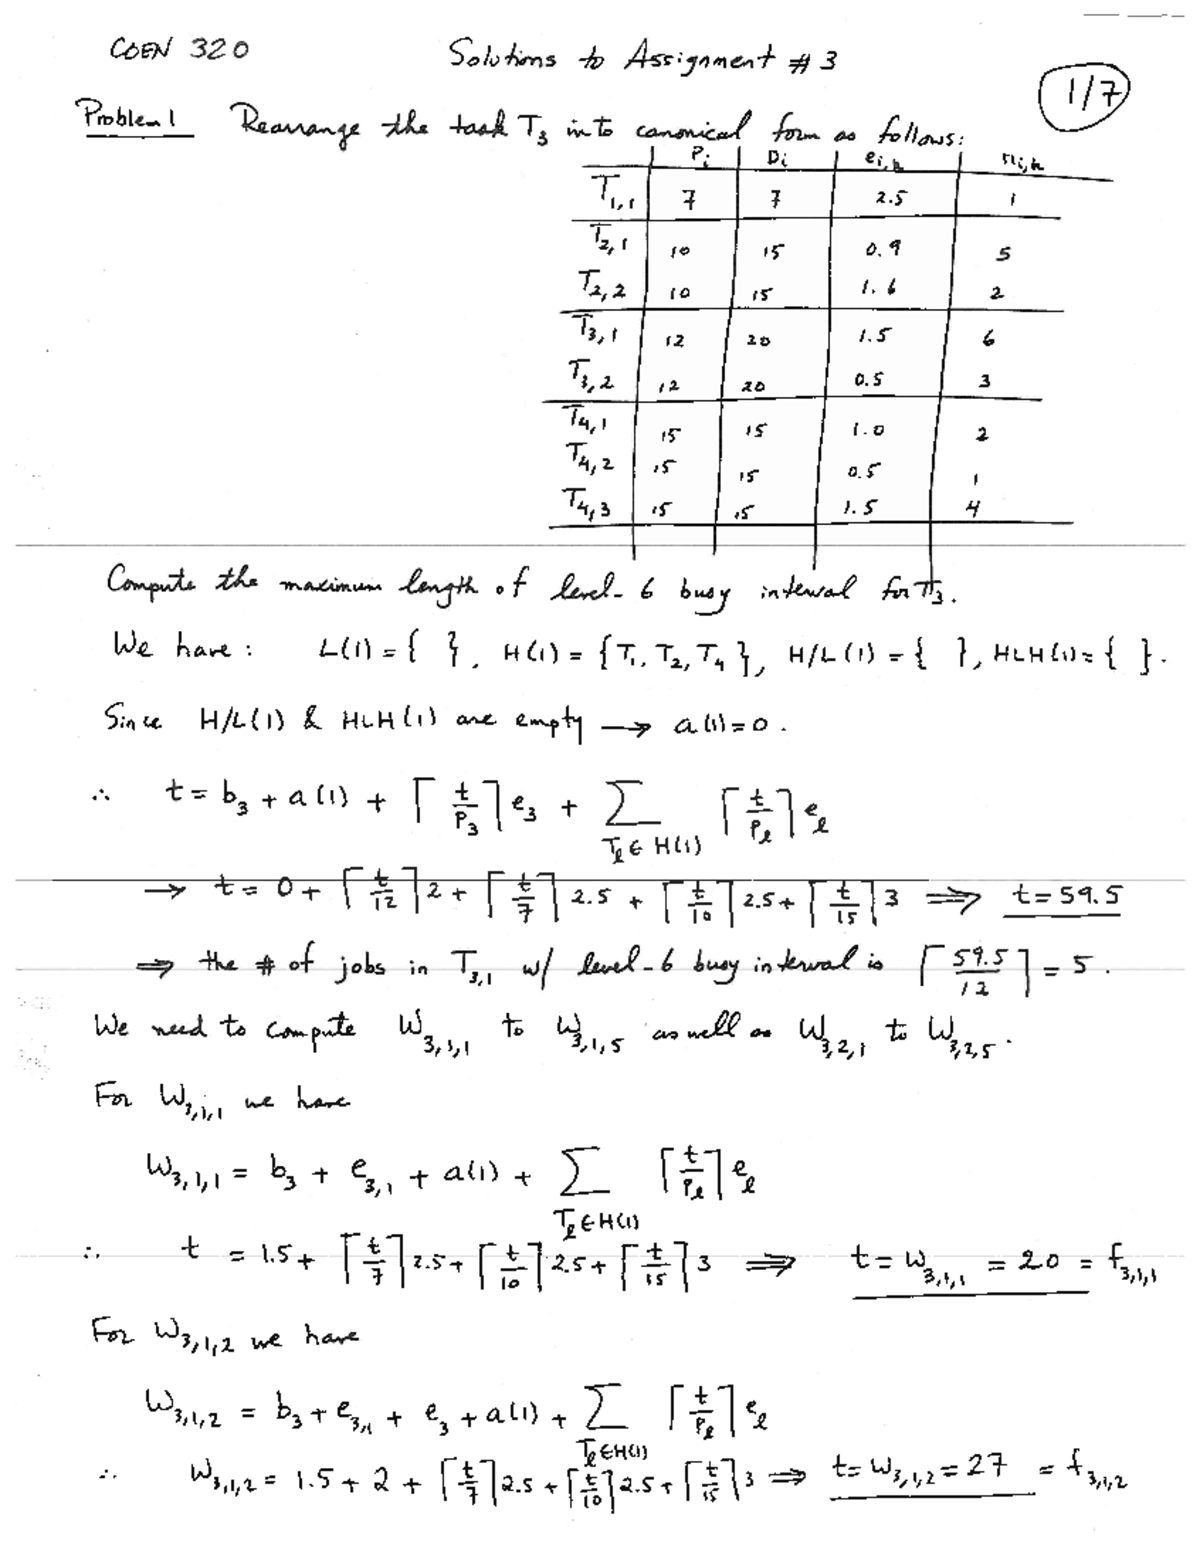 COEN 320
Solutions to Assignment # 3
1/7
Problem 1 Rearrange the task T3 into canonical form as follows:
Pi Di ei,k ni,k
T1,1 7 7 2.5 1
T2,1 10 15 0.9 5
T2,2 10 15 1.6 2
T3,1 12 20 1.5 6
T3,2 12 20 0.5 3
T4,1 15 15 1.0 2
T4,2 15 15 0.5 1
T4,3 15 15 1.5 4
Compute the maximum length of level-6 busy interval for T3.
We have: L(1) = { }, H(1) = {T1, T2, T4}, H/L(1) = { }, HLH(1) = { }.
Since H/L(1) & HLH(1) are empty → a(1)=0.
∴ t = b3 + a(1) + ⌈t/P3⌉ e3 + Σ Tℓ∈H(1) ⌈t/Pℓ⌉ eℓ
→ t = 0 + ⌈t/12⌉ 2 + ⌈t/7⌉ 2.5 + ⌈t/10⌉ 2.5 + ⌈t/15⌉ 3 ⟹ t = 59.5
⟹ the # of jobs in T3,1 w/ level-6 busy interval is ⌈59.5/12⌉ = 5.
We need to compute W3,1,1 to W3,1,5 as well as W3,2,1 to W3,2,5.
For W3,1,1 we have
W3,1,1 = b3 + e3,1 + a(1) + Σ Tℓ∈H(1) ⌈t/Pℓ⌉ eℓ
∴ t = 1.5 + ⌈t/7⌉ 2.5 + ⌈t/10⌉ 2.5 + ⌈t/15⌉ 3 ⟹ t = W3,1,1 = 20 = f3,1,1
For W3,1,2 we have
W3,1,2 = b3 + e3,1 + e3 + a(1) + Σ Tℓ∈H(1) ⌈t/Pℓ⌉ eℓ
∴ W3,1,2 = 1.5 + 2 + ⌈t/7⌉ 2.5 + ⌈t/10⌉ 2.5 + ⌈t/15⌉ 3 ⟹ t = W3,1,2 = 27 = f3,1,2